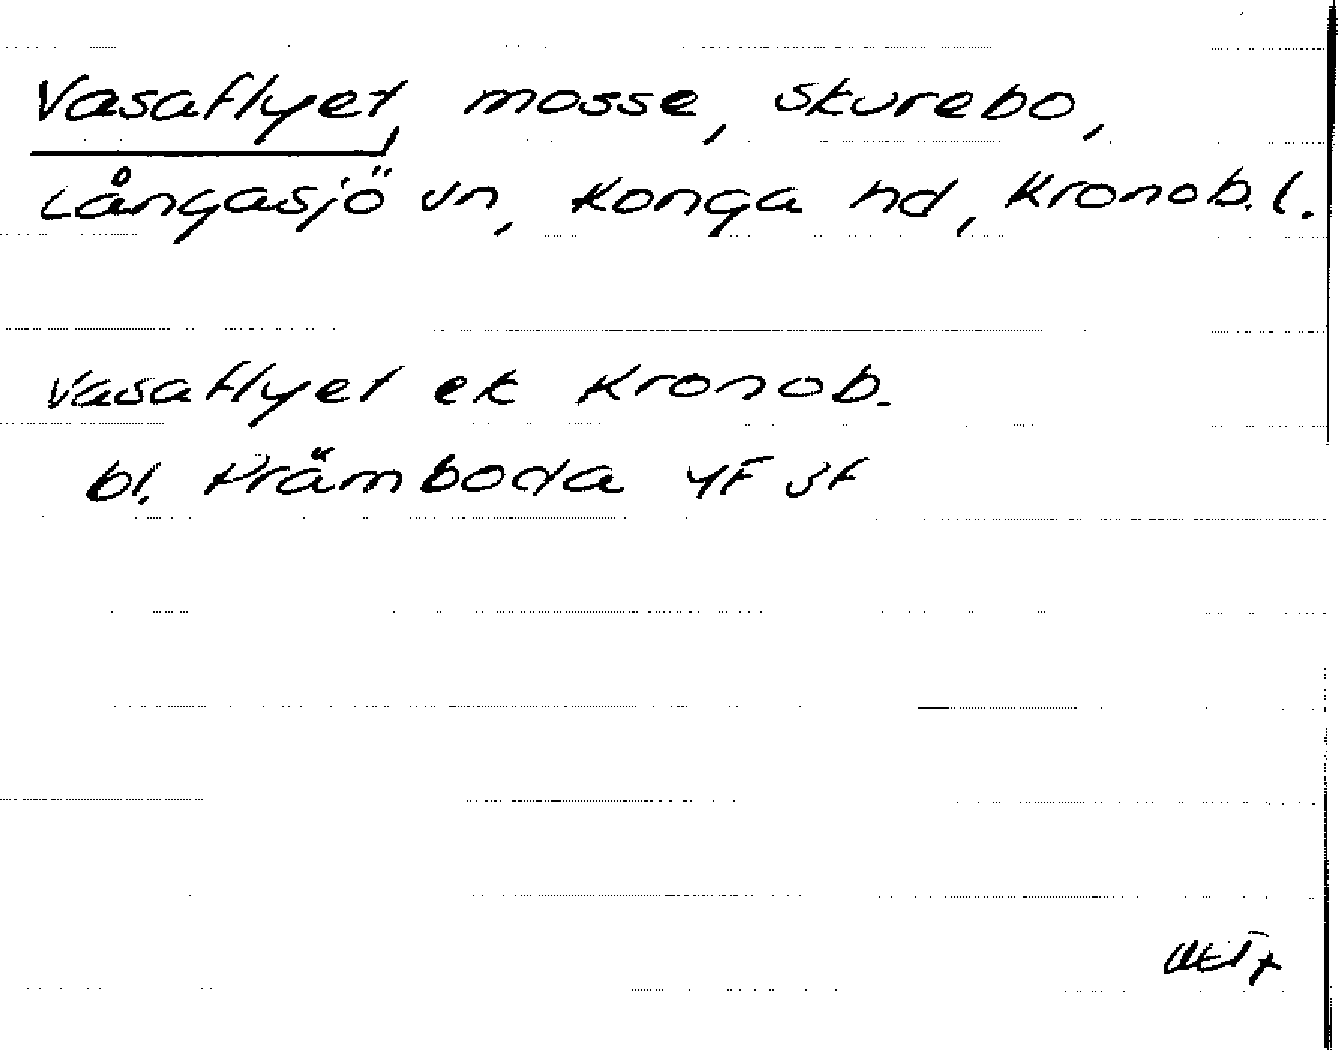 Vasaflyet, mosse, Skurebo,
Långasjö sn, Konga hd, Kronob. l.
Vasaflyet ek Kronob.
bl. Främboda 4F 3f